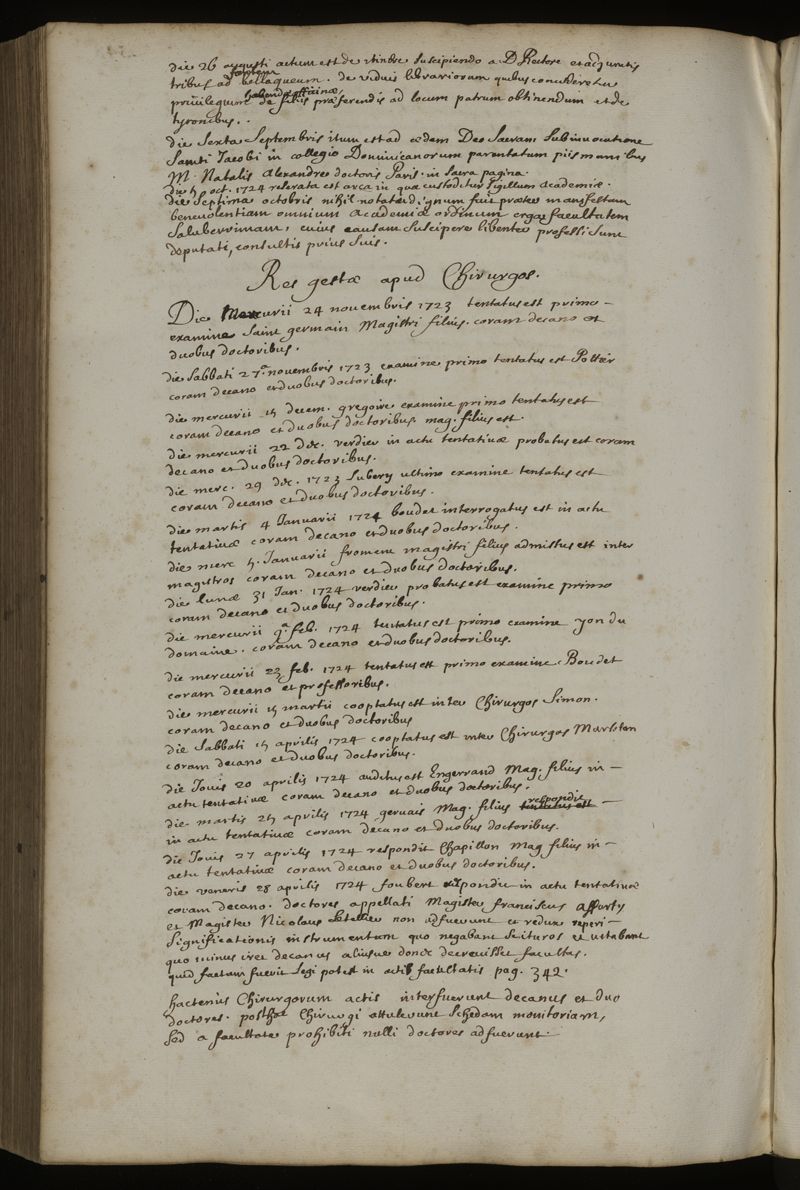 die 26 augusti actum est de itinere suscipiendo a D. Rectore et adjunctis
tribus ad fontem bellaqueum. de viduis librariorum quibus concederetur
privilegium habendæ officinæ, de filiis præferendis ad locum patrum obtinendum et de
tyronibus..
die sexta septembris itum est ad ædem Deo sacram sub invocatione
Sancti Jacobi in collegio Dominicanorum parentatum piis manibus
M. Natalis Alexandre doctoris Paris. in sacra pagina.
die 5 oct. 1724 reserata est arca in qua custoditur sigillum academiæ.
die septima octobris nihil notatu dignum fuit præter manifestam
benevolentiam omnium academiæ ordinum erga facultatem
saluberrimam, cuius causam suscipere libenter professi sunt
deputati, consultis prius suis.
Res gestæ apud Chirurgos.
Die Mercurii 24 novembris 1723 tentatus est primo
examine Saint germain Magistri filius. coram decano et
duobus doctoribus.
die Sabbati 27.a novembris 1723 examine primo tentatus est Potter
coram decano et duobus doctoribus.
die mercurii 15 decem. gregoire examine primo tentatus est
coram decano et duobus doctoribus. mag. filius est.
die mercurii 22 dec. verdier in actu tentativæ probatus est coram
decano et duobus doctoribus.
die merc. 29 dec. 1723 Subery ultimo examine tentatus est
coram decano et duobus doctoribus.
die martis 4 Januarii 1724 boudet interrogatus est in actu
tentativæ coram decano et duobus doctoribus.
die merc 5. Januarii froment magistri filius admissus est inter
magistros coram decano et duobus doctoribus.
die lunæ 31 Jan. 1724 verdier probatus est examine primo
coram decano et duobus doctoribus.
die mercurii 9.a feb. 1724 tentatus est primo examine yon du
domaine. coram decano et duobus doctoribus.
die mercurii 23 feb. 1724 tentatus est primo examine Boudet
coram decano et professoribus.
die mercurii 15 martii cooptatus est inter Chirurgos Simon.
coram decano et duobus doctoribus
die Sabbati 15 aprilis 1724 cooptatus est inter Chirurgos
coram decano et duobus doctoribus.
die Jovis 20 aprilis 1724 auditus est Engerrand Mag. filius in
actu tentativæ coram decano et duobus doctoribus.
die martis 25 aprilis 1724 gervais Mag. filius tentatus est respondit
in actu tentativæ coram decano et duobus doctoribus.
die Jovis 27 aprilis 1724 respondit Chapillon Mag filius in
actu tentativæ coram decano et duobus doctoribus.
die veneris 28 aprilis 1724 foubert respondit in actu tentativæ
coram decano. doctores appellati Magister franciscus afforty
et Magister Nicolaus Letellier non adfuerunt
significationis instrumentum quo negabant se ituros et vitabant
quo minus iret decanus aliusve donec decrevisset facultas.
quid factum fuerit legi potest in actis facultatis pag. 342.
hactenus Chirurgorum actis interfuerunt decanus et duo
doctores. posthac Chirurgi attulerunt schedam monitoriam,
sed a facultate prohibiti nulli doctores adfuerunt.